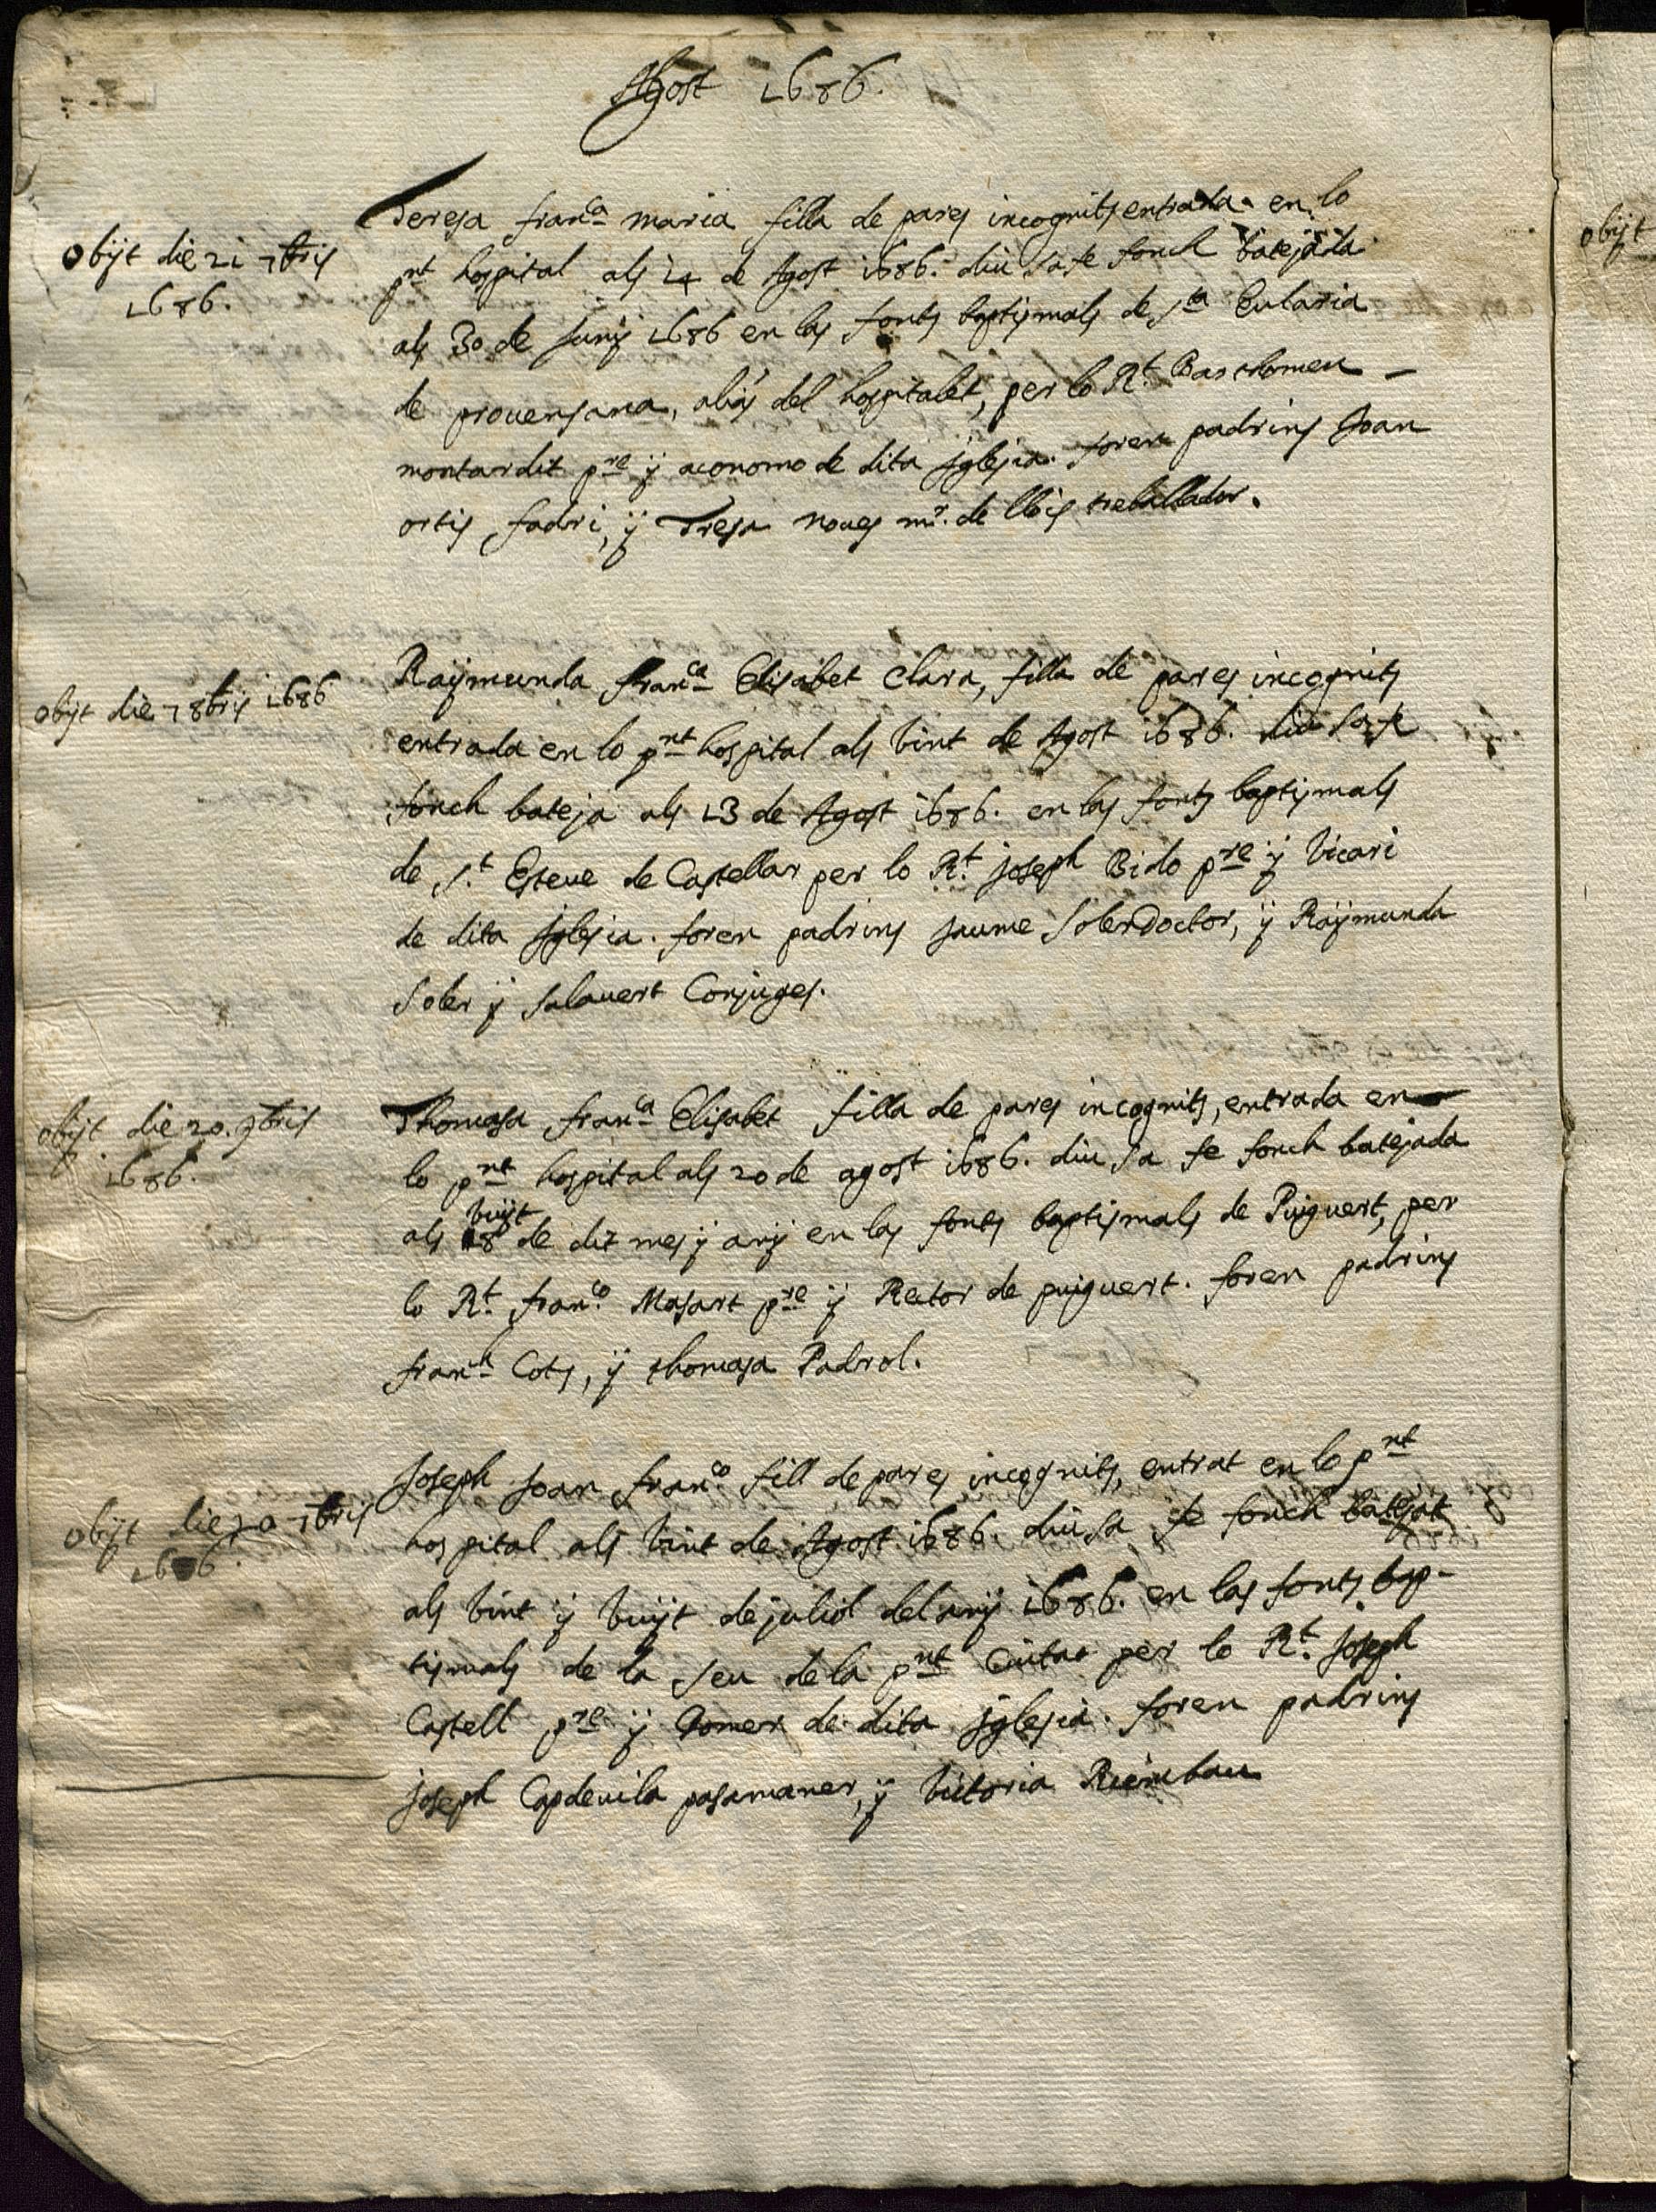 Agost 1686.
Obijt die 21 7bris
1686.
Teresa franca maria filla de pares incognits entrada en lo
pnt hospital als 14 de Agost 1686. diu sa fe fonch batejada
als 30 de Junÿ 1686 en las fonts baptismals de sta Eularia
de provensana, alias del hospitalet, per lo Rt. Barthomeu
montardit pre ÿ aconomo de dita Iglesia. foren padrins Joan
ortis fadri, ÿ Tresa noves mr. de lluis treballador.
obijt die 7 8bris 1686
Raÿmunda Franca Elisabet Clara, filla de pares incognits
entrada en lo pnt hospital als vint de Agost 1686. diu sa fe
fonch bateja als 13 de Agost 1686. en las fonts baptismals
de St. Esteve de Castellar per lo Rt. Joseph Bido pre ÿ Vicari
de dita Iglesia. foren padrins Jaume Soler Doctor, ÿ Raÿmunda
Soler ÿ Salavert Conjuges.
obijt die 20. 9bris
1686.
Thomasa franca Elisabet filla de pares incognits, entrada en
lo pnt hospital als 20 de agost 1686. diu sa fe fonch batejada
vuÿt
als 18 de dit mes ÿ anÿ en las fonts baptismals de Puigvert, per
lo Rt. franco. Masart pre ÿ Rector de puigvert. foren padrins
franca Cots, ÿ thomasa Padrol.
Obijt die 20 7bris
1686.
Joseph Joan franco. fill de pares incognits, entrat en lo pnt
hospital als vint de Agost 1686. diu sa fe fonch batejat
als vint ÿ vuÿt de juliol del anÿ 1686. en las fonts bap-
tismals de la Seu de la pnt Ciutat per lo Rt. Joseph
Castell pre ÿ Domer de dita Iglesia. foren padrins
Joseph Capdevila pasamaner, ÿ Victoria Riembau
obijt